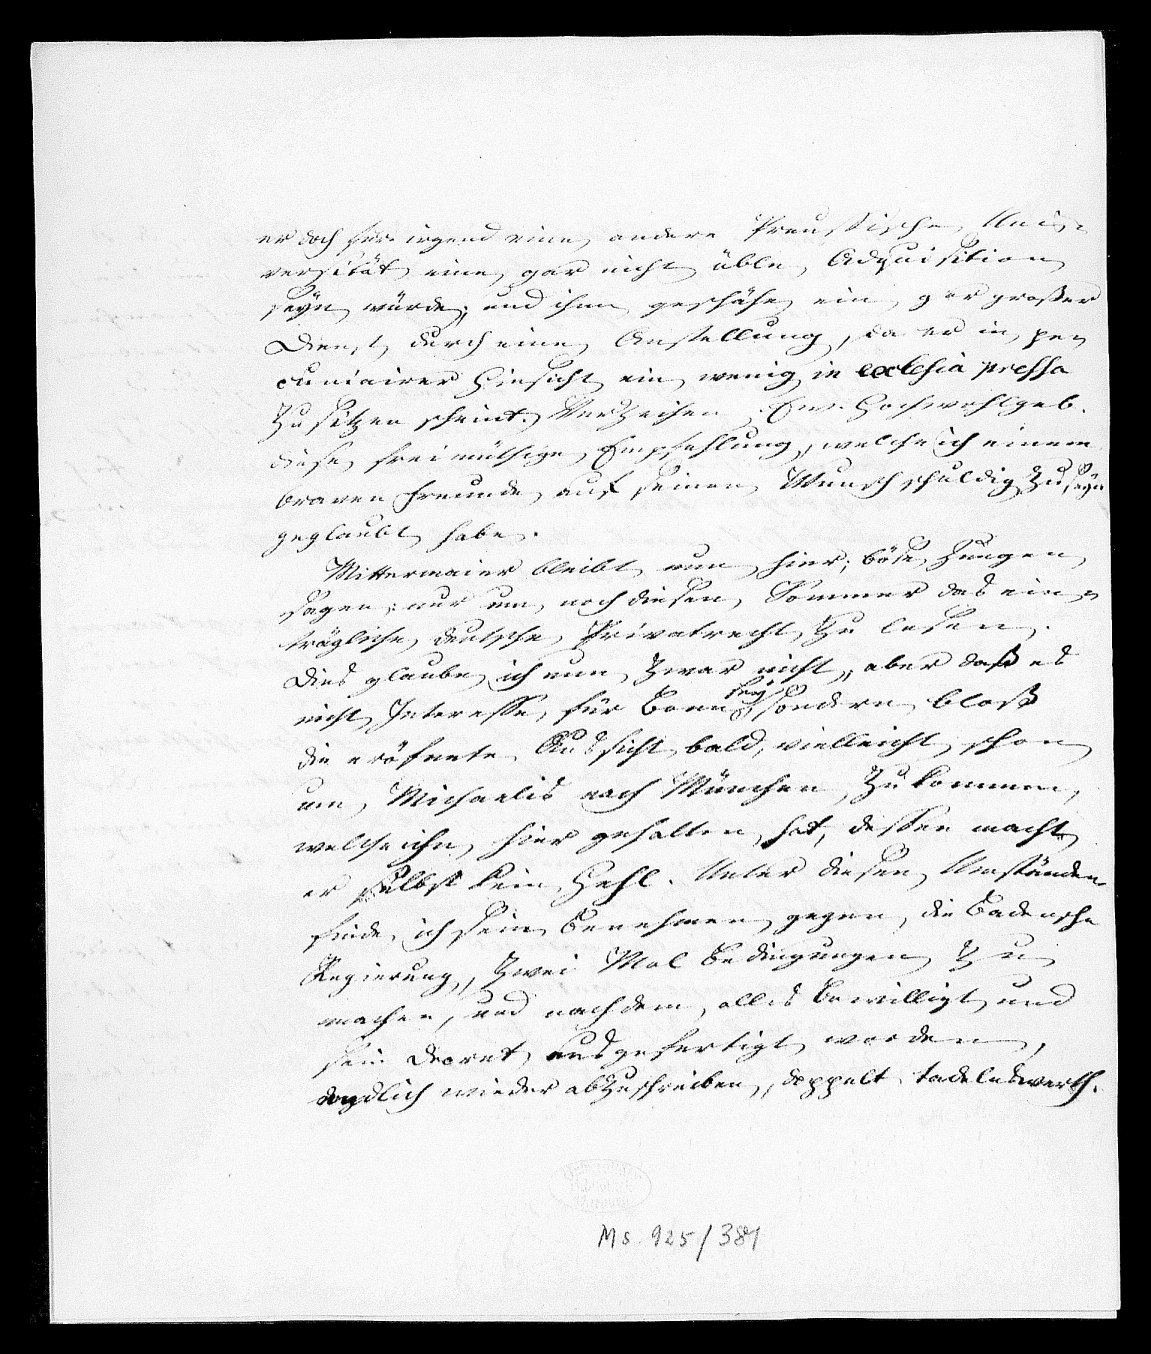 er doch für irgend eine andere Preußische Uni-
versität eine gar nicht üble Adquisition
seyn würde; und ihm geschähe ein gar großer
Dienst durch eine Anstellung, da er in pe-
cuniairer Hinsicht ein wenig in ecclesia pressa
zu sitzen scheint. Verzeihen Ew. Hochwohlgeb.
diese freimüthige Empfehlung, welche ich einem
braven Freunde auf seinen Wunsch schuldig zu seyn
geglaubt habe.
Mittermaier bleibt nun hier; böse Zungen
sagen: nur um noch diesen Sommer das ein-
trägliche deutsche Privatrecht zu lesen.
Dies glaube ich nun zwar nicht, aber daß es
nicht Interesse für Bonn sey, sondern bloß
die eröfnete Aussicht, bald, vielleicht schon
um Michaelis nach München zu kommen,
welche ihn hier gehalten hat, dessen macht
er selbst kein Hehl. Unter diesen Umständen
finde ich sein Benehmen gegen die Badensche
Regierung, zwei Mal Bedingungen zu
machen, und nachdem alles bewilligt und
sein Decret ausgefertigt worden,
endlich wieder abzuschreiben, doppelt tadelnswerth.
Ms. 925/381